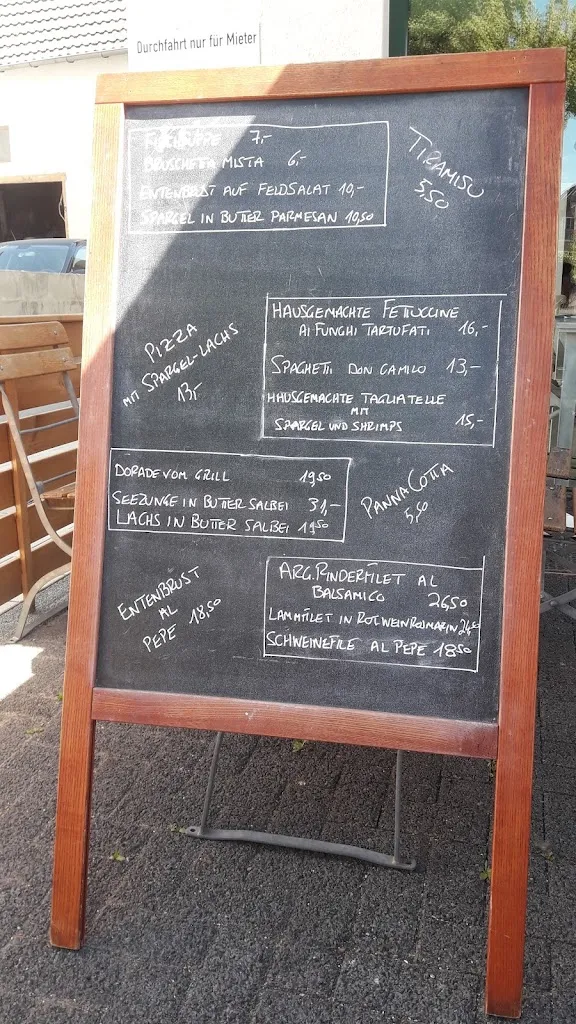 Durchfahrt nur für Mieter
7,-
BRUSCHETTA MISTA 6,-
ENTENBRUST AUF FELDSALAT 10,-
SPARGEL IN BUTTER PARMESAN 10,50
TIRAMISU
5,50
HAUSGEMACHTE FETTUCCINE
AI FUNGHI TARTUFATI 16,-
SPAGHETTI DON CAMILO 13,-
HAUSGEMACHTE TAGLIATELLE
MIT
SPARGEL UND SHRIMPS 15,-
PIZZA
MIT SPARGEL-LACHS
13,-
DORADE VOM GRILL 19,50
SEEZUNGE IN BUTTER SALBEI 31,-
LACHS IN BUTTER SALBEI 19,50
PANNA COTTA
ENTENBRUST
AL
PEPE 18,50
ARG. RINDERFILET AL
BALSAMICO 26,50
LAMMFILET IN ROTWEIN ROSMARIN
SCHWEINEFILE AL PEPE 18,50